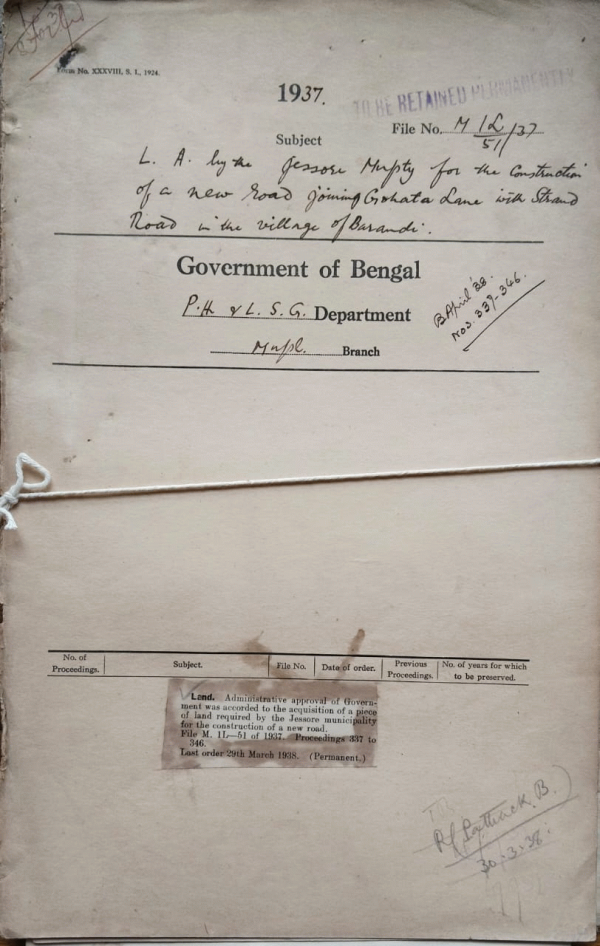 Form No. XXXVIII, S. I., 1924.
1937.
TO BE RETAINED PERMANENTLY
File No. M 1L/51/37
Subject
L. A. by the Jessore Mupty for the Construction
of a new road joining Gohata Lane with Strand
Road in the village of Barandi.
Government of Bengal
P.H. & L.S.G. Department
Mupl. Branch
B April '38.
Nos. 337-346.
No. of Proceedings. Subject. File No. Date of order. Previous Proceedings. No. of years for which to be preserved.
Land. Administrative approval of Govern-
ment was accorded to the acquisition of a piece
of land required by the Jessore municipality
for the construction of a new road.
File M. 1L—51 of 1937. Proceedings 337 to
346.
Last order 29th March 1938. (Permanent.)
30.3.38.